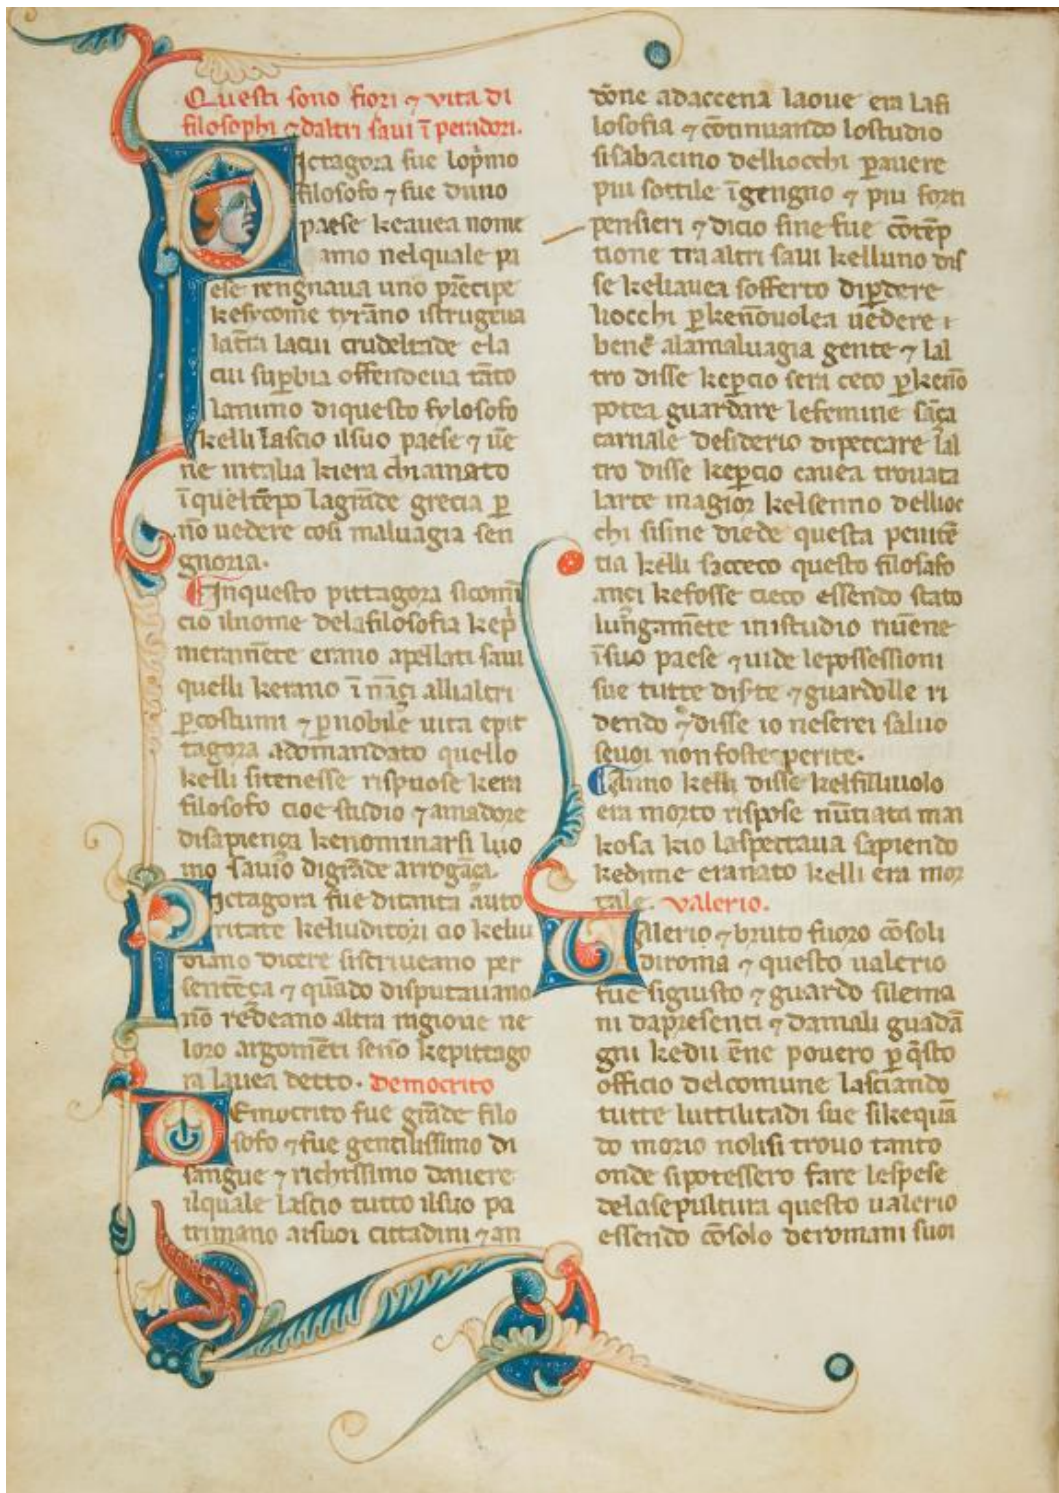 Questi sono fiori ⁊ vita di
filosophi ⁊ daltri saui ī peradori.
Pictagora fue lop̄mo
filosofo ⁊ fue duno
paese keauea nome
samo nelquale pa
ese rengnaua uno prēcipe
kesycome tyrāno istrugeua
la crudeltade ela
cui sup̱bia offendeua tāto
lanimo diquesto fylosofo
kelli lascio ilsuo paese ⁊ uē
ne intalia kiera chiamato
ī queltēpo lagrāde grecia p̱
nō uedere cosi maluagia sen
gnoria.
Inquesto pittagora sicomī
cio ilnome delafilosofia kep̄
meramēte erano apellati saui
quelli kerano ī nāçi allialtri
p̱costumi ⁊ p̱nobile uita epit
tagora adomandato quello
kelli sitenesse rispuose kera
filosofo cioe studio ⁊ amadore
disapiença kenominarsi luo
mo sauio digrāde arrogāça.
Pictagora fue ditanta auto
ritate keliuditori cio keliu
diano dicere siscriueano per
sentēça ⁊ quādo disputauano
nō rēdeano altra ragione ne
loro argomēti senō kepittago
ra lauea detto. Democrito
Democrito fue grāde filo
sofo ⁊ fue gentilissimo di
sangue ⁊ richissimo dauere
ilquale lascio tutto ilsuo pa
trimano aisuoi cittadini ⁊ an
dōne adaccena laoue era lafi
losofia ⁊ cōtinuando lostudio
sisabacino delliocchi p̱auere
piu sottile īgengno ⁊ piu forti
pensieri ⁊ dicio fine fue cōtēp
tione tra altri saui kelluno dis
se keliauea sofferto dip̱dere
liocchi p̱kenōuolea uēdere i
bene alamaluagia gente ⁊ lal
tro disse kep̱cio sera ceco p̱kenō
potea guardare lefemine sāça
carnale desiderio dipeccare lal
tro disse kep̱cio cauea trouata
larte magior kelsenno dellioc
chi sisine diede questa penitē
tia kelli sacceco questo filosafo
ançi kefosse cieco essendo stato
lungamēte inistudio riuēne
īsuo paese ⁊ uide lepossessioni
sue tutte disfte ⁊ guardolle ri
dendo ⁊ disse io neserei saluo
seuoi non foste perite.
Anno kelli disse kelfilliuolo
era morto rispose nūtiata mai
kosa kio laspettaua sapiendo
kedime eranato kelli era mor
tale. valerio.
Valerio ⁊ bruto fuoro cōsoli
diroma ⁊ questo ualerio
fue sigiusto ⁊ guardo silema
ni dapresenti ⁊ damali guadā
gni kedu ēne pouero p̱ q̄sto
officio delcomune lasciando
tutte luttilitadi sue sikequā
do morio nolisi trouo tanto
onde sipotessero fare lespese
delasepultura questo ualerio
essendo cōsolo deromani suoi